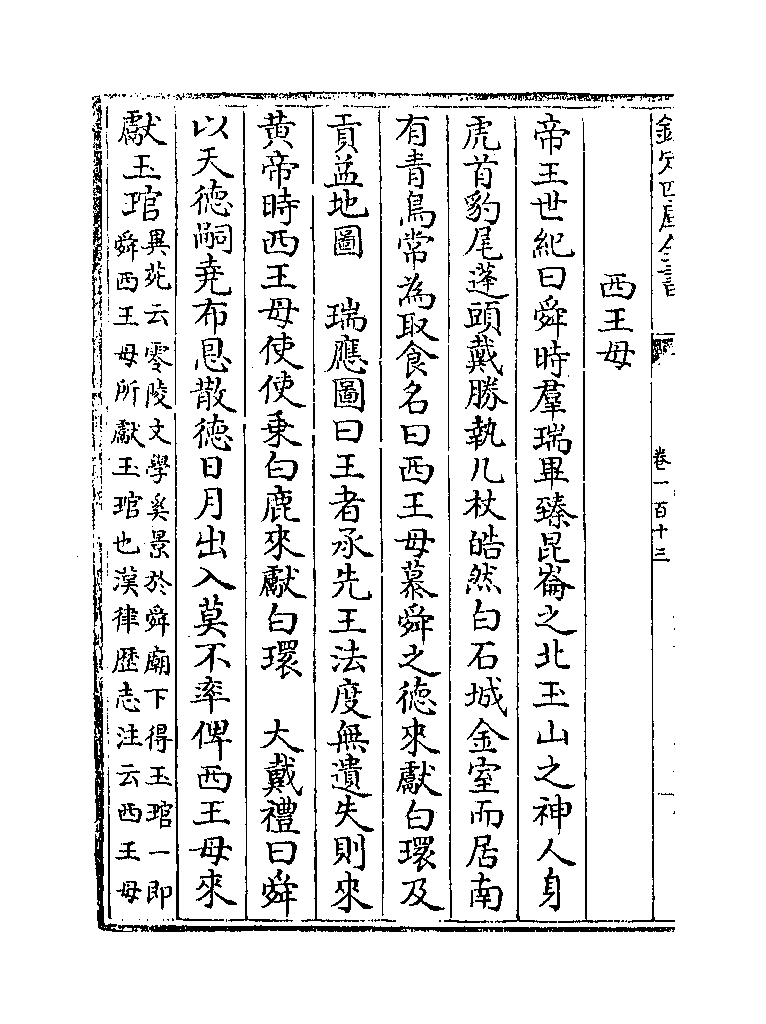 欽定四庫全書
卷一百十三
西王母
帝王世紀曰舜時羣瑞畢臻昆崙之北玉山之神人身
虎首豹尾蓬頭戴勝執几杖皓然白石城金室而居南
有青鳥常為取食名曰西王母慕舜之德來獻白環及
貢益地圖　瑞應圖曰王者承先王法度無遺失則來
黄帝時西王母使使乗白鹿來獻白環　大戴禮曰舜
以天德嗣堯布恩散德日月出入莫不率俾西王母來
獻玉琯異苑云零陵文學奚景於舜廟下得玉琯一即
舜西王母所獻玉琯也漢律歴志注云西王母